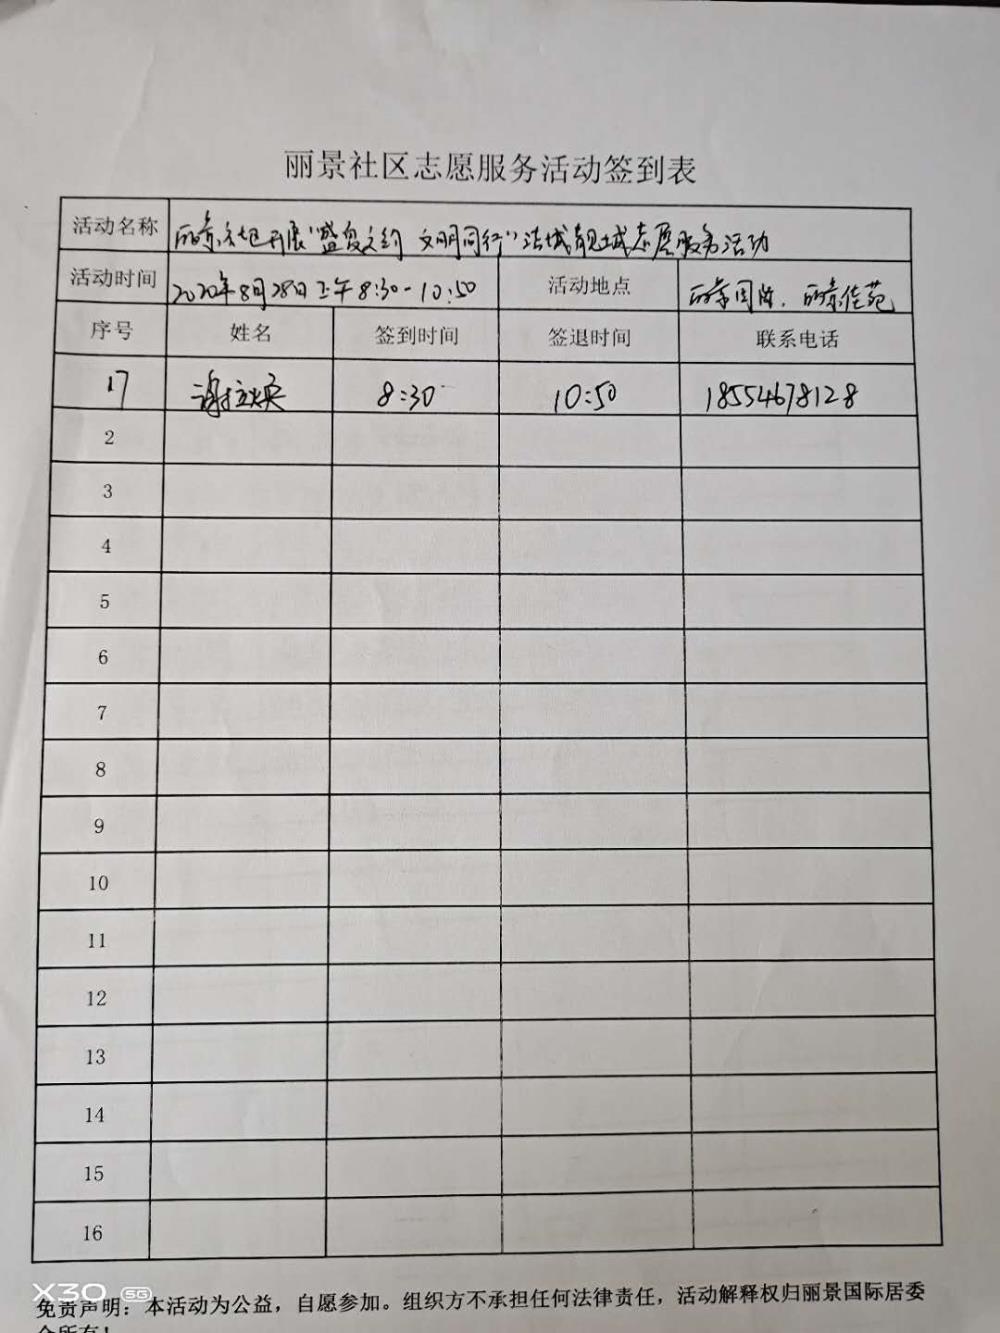 丽景社区志愿服务活动签到表
活动名称 丽景社区开展"盛夏之约 文明同行"洁城靓城志愿服务活动
活动时间 2020年8月28日上午8:30-10:50 活动地点 丽景国际、丽景佳苑
序号 姓名 签到时间 签退时间 联系电话
17 谢焕 8:30 10:50 18554678128
2
3
4
5
6
7
8
9
10
11
12
13
14
15
16
免责声明：本活动为公益，自愿参加。组织方不承担任何法律责任，活动解释权归丽景国际居委
会所有！
X30 5G